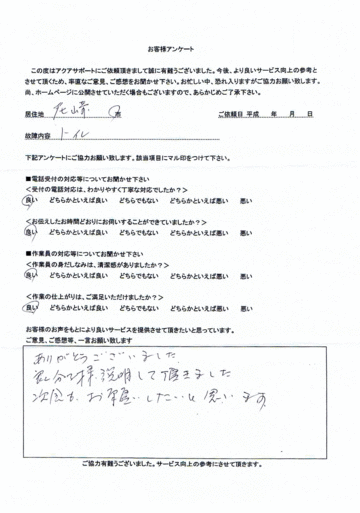 お客様アンケート
この度はアクアサポートにご依頼頂きまして誠に有難うございました。今後、より良いサービス向上の参考と
させて頂くため、率直なご意見、ご感想をお聞かせ下さい。お忙しい中、恐れ入りますがご協力お願い致します。
尚、ホームページに公開させていただく場合もございますので、あらかじめご了承下さい。
居住地 尼崎 様 ご依頼日 平成 年 月 日
故障内容 トイレ
下記アンケートにご協力お願い致します。該当項目にマル印をつけて下さい。
■電話受付の対応等についてお聞かせ下さい
<受付の電話対応は、わかりやすく丁寧な対応でしたか？>
良い どちらかといえば良い どちらでもない どちらかといえば悪い 悪い
<お伝えしたお時間どおりにお伺いすることができていましたか？>
良い どちらかといえば良い どちらでもない どちらかといえば悪い 悪い
■作業員の対応等についてお聞かせ下さい
<作業員の身だしなみは、清潔感がありましたか？>
良い どちらかといえば良い どちらでもない どちらかといえば悪い 悪い
<作業の仕上がりは、ご満足いただけましたか？>
良い どちらかといえば良い どちらでもない どちらかといえば悪い 悪い
お客様のお声をもとにより良いサービスを提供させて頂きたいと思っています。
ご意見、ご感想等、一言お願い致します
ありがとうございました
説明して頂きました
次回も、お願いしたいと思います
ご協力有難うございました。サービス向上の参考にさせて頂きます。